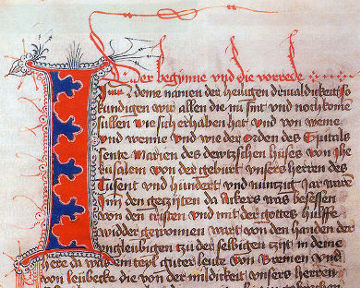 der beginne vnd die vorrede
In deme namen der heiligen driualdickeit so
kundigen wir allen die nu sint vnd noch kome
sullen wie sich erhaben hat vnd von weme
vnd wenne vnd wie der Orden des Spitals
sente Marien des dewtschen huses von Jhe
rusalem von der geburt vnsers herren des
Tusent vnd hundert vnd nuntzig Jar ware
In den getzyten do Akers was besessen
von den cristen vnd mit der gottes hulffe
widder gewonnen wart von den handen der
vngleubigen tzu der selbigen tzyt in deme
here da was eyn teyl guter leute von Bremen vnd
von leubecke die von der mildickeit vnsers herren